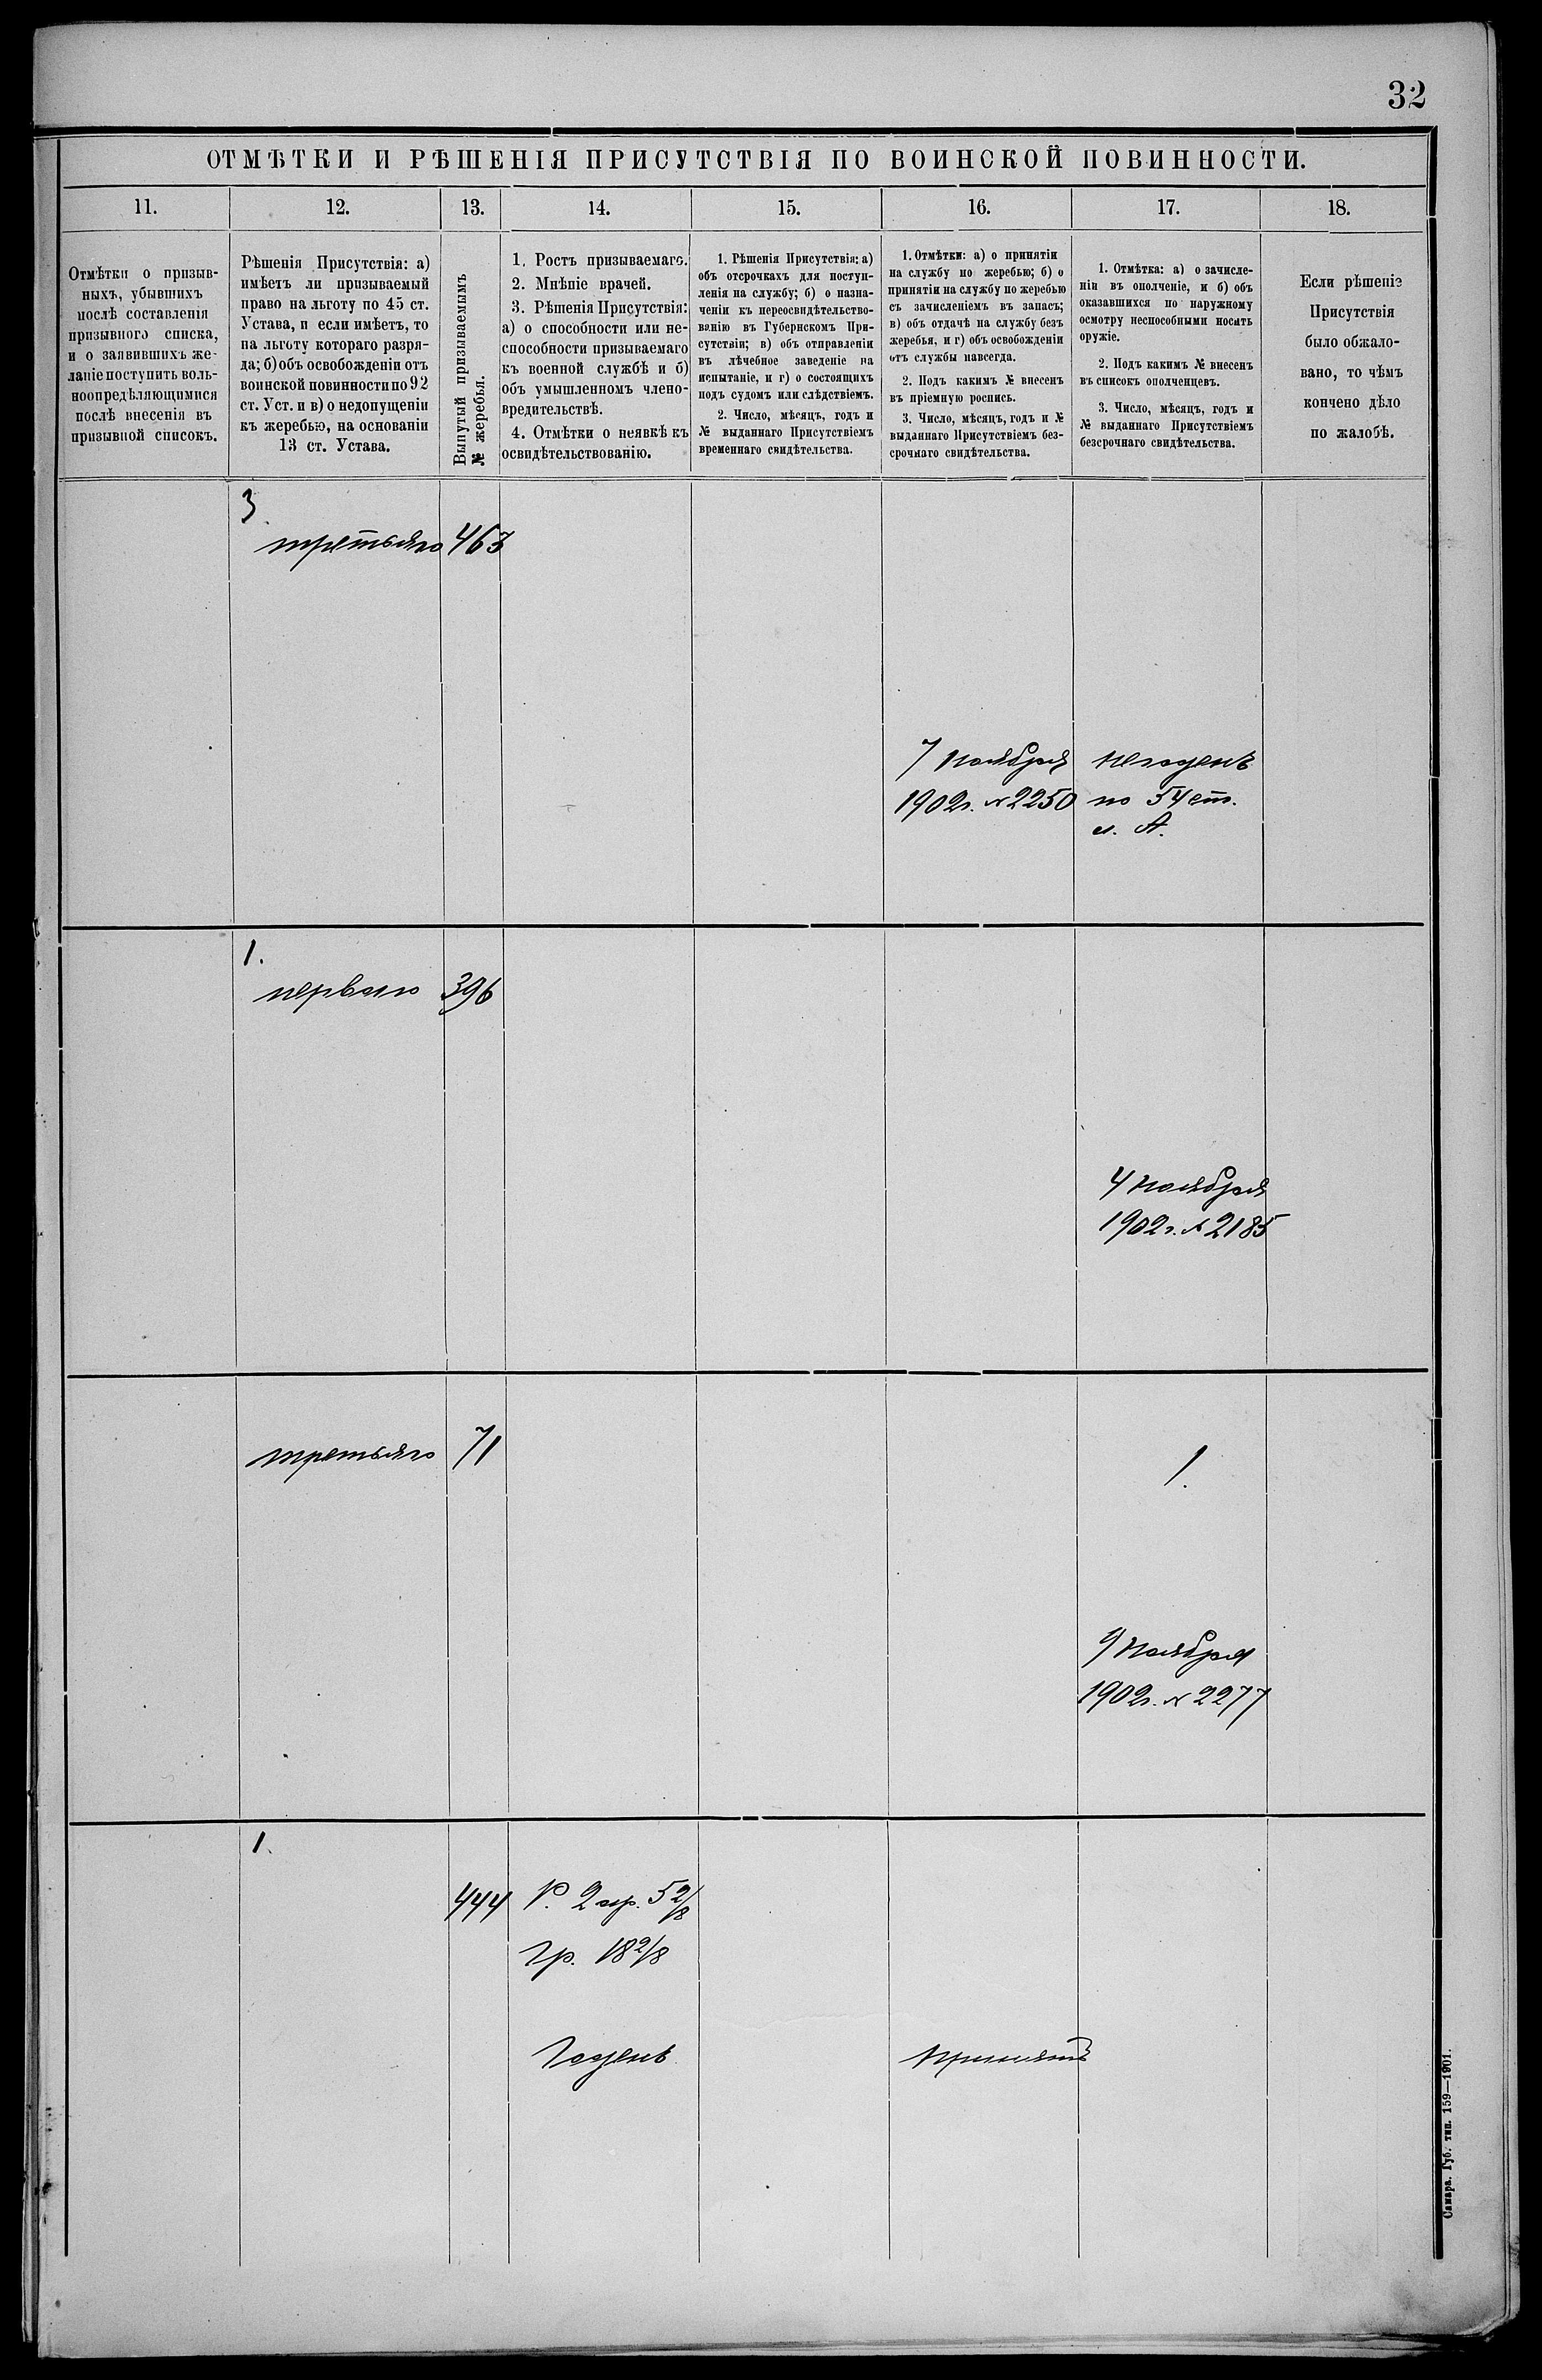 32
ОТМѢТКИ И РѢШЕНІЯ ПРИСУТСТВІЯ ПО ВОИНСКОЙ ПОВИННОСТИ.
11.
12.
13.
14.
15.
16.
17.
18.
Отмѣтки о призыв-
ныхъ, убывшихъ
послѣ составленія
призывного списка,
и о заявившихъ же-
ланіе поступить воль-
ноопредѣляющимися
послѣ внесенія въ
призывной списокъ.
Рѣшенія Присутствія: а)
имѣетъ ли призываемый
право на льготу по 45 ст.
Устава, и если имѣетъ, то
на льготу котораго разря-
да; б) объ освобожденіи отъ
воинской повинности по 92
ст. Уст. и в) о недопущеніи
къ жеребью, на основаніи
13 ст. Устава.
Вынутый призываемымъ
№ жеребья.
1. Ростъ призываемаго.
2. Мнѣніе врачей.
3. Рѣшенія Присутствія:
а) о способности или не-
способности призываемаго
къ военной службѣ и б)
объ умышленномъ члено-
вредительствѣ.
4. Отмѣтки о неявкѣ къ
освидѣтельствованію.
1. Рѣшенія Присутствія: а)
объ отсрочкахъ для поступ-
ленія на службу; б) о назна-
ченіи къ переосвидѣтельство-
ванію въ Губернскомъ При-
сутствіи; в) объ отправленіи
въ лѣчебное заведеніе на
испытаніе, и г) о состоящихъ
подъ судомъ или слѣдствіемъ.
2. Число, мѣсяцъ, годъ и
№ выданнаго Присутствіемъ
временнаго свидѣтельства.
1. Отмѣтки: а) о принятіи
на службу по жеребью; б) о
принятіи на службу по жеребью
съ зачисленіемъ въ запасъ;
в) объ отдачѣ на службу безъ
жеребья, и г) объ освобожденіи
отъ службы навсегда.
2. Подъ какимъ № внесенъ
въ пріемную роспись.
3. Число, мѣсяцъ, годъ и №
выданнаго Присутствіемъ без-
срочнаго свидѣтельства.
1. Отмѣтка: а) о зачисле-
ніи въ ополченіе, и б) объ
оказавшихся по наружному
осмотру неспособными носить
оружіе.
2. Подъ какимъ № внесенъ
въ списокъ ополченцевъ.
3. Число, мѣсяцъ, годъ и
№ выданнаго Присутствіемъ
безсрочнаго свидѣтельства.
Если рѣшеніе
Присутствія
было обжало-
вано, то чѣмъ
кончено дѣло
по жалобѣ.
3
третьяго 463
7 ноября
1902г. № 2250
негоденъ
по 54 ст.
л. А.
1.
перваго 396
4 ноября
1902г. № 2185
третьяго 71
1.
9 ноября
1902г. № 2277
1.
444
Р. 2 ар. 5 2/8
Гр. 18 2/8
Годенъ
принятъ
Самара. Губ. тип. 159—1901.